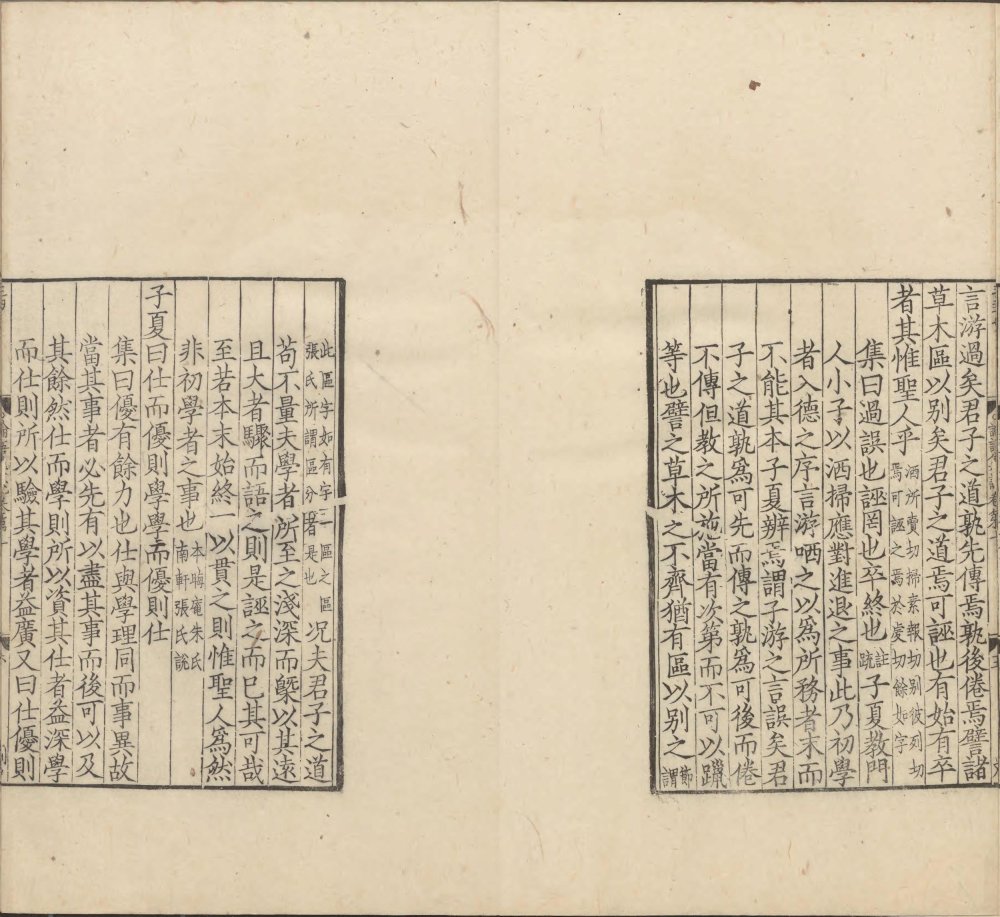 言游過矣君子之道孰先傳焉孰後倦焉譬諸
草木區以别矣君子之道焉可誣也有始有卒
者其惟聖人乎洒所賣切掃素報切别彼列切
焉可誣之焉於虔切餘如字
集曰過誤也誣罔也卒終也註䟽子夏教門
人小子以洒掃應對進退之事此乃初學
者入德之序言游哂之以為所務者末而
不能其本子夏辨焉謂子游之言誤矣君
子之道孰為可先而傳之孰為可後而倦
不傳但教之所施當有次第而不可以躐
等也譬之草木之不齊猶有區以别之節謂
此區字如有字二區之區
張氏所謂區分者是也況夫君子之道
苟不量夫學者所至之淺深而槩以其遠
且大者驟而語之則是誣之而已其可哉
至若本末始終一以貫之則惟聖人為然
非初學者之事也本晦庵朱氏
南軒張氏說
子夏曰仕而優則學學而優則仕
集曰優有餘力也仕與學理同而事異故
當其事者必先有以盡其事而後可以及
其餘然仕而學則所以資其仕者益深學
而仕則所以驗其學者益廣又曰仕優則